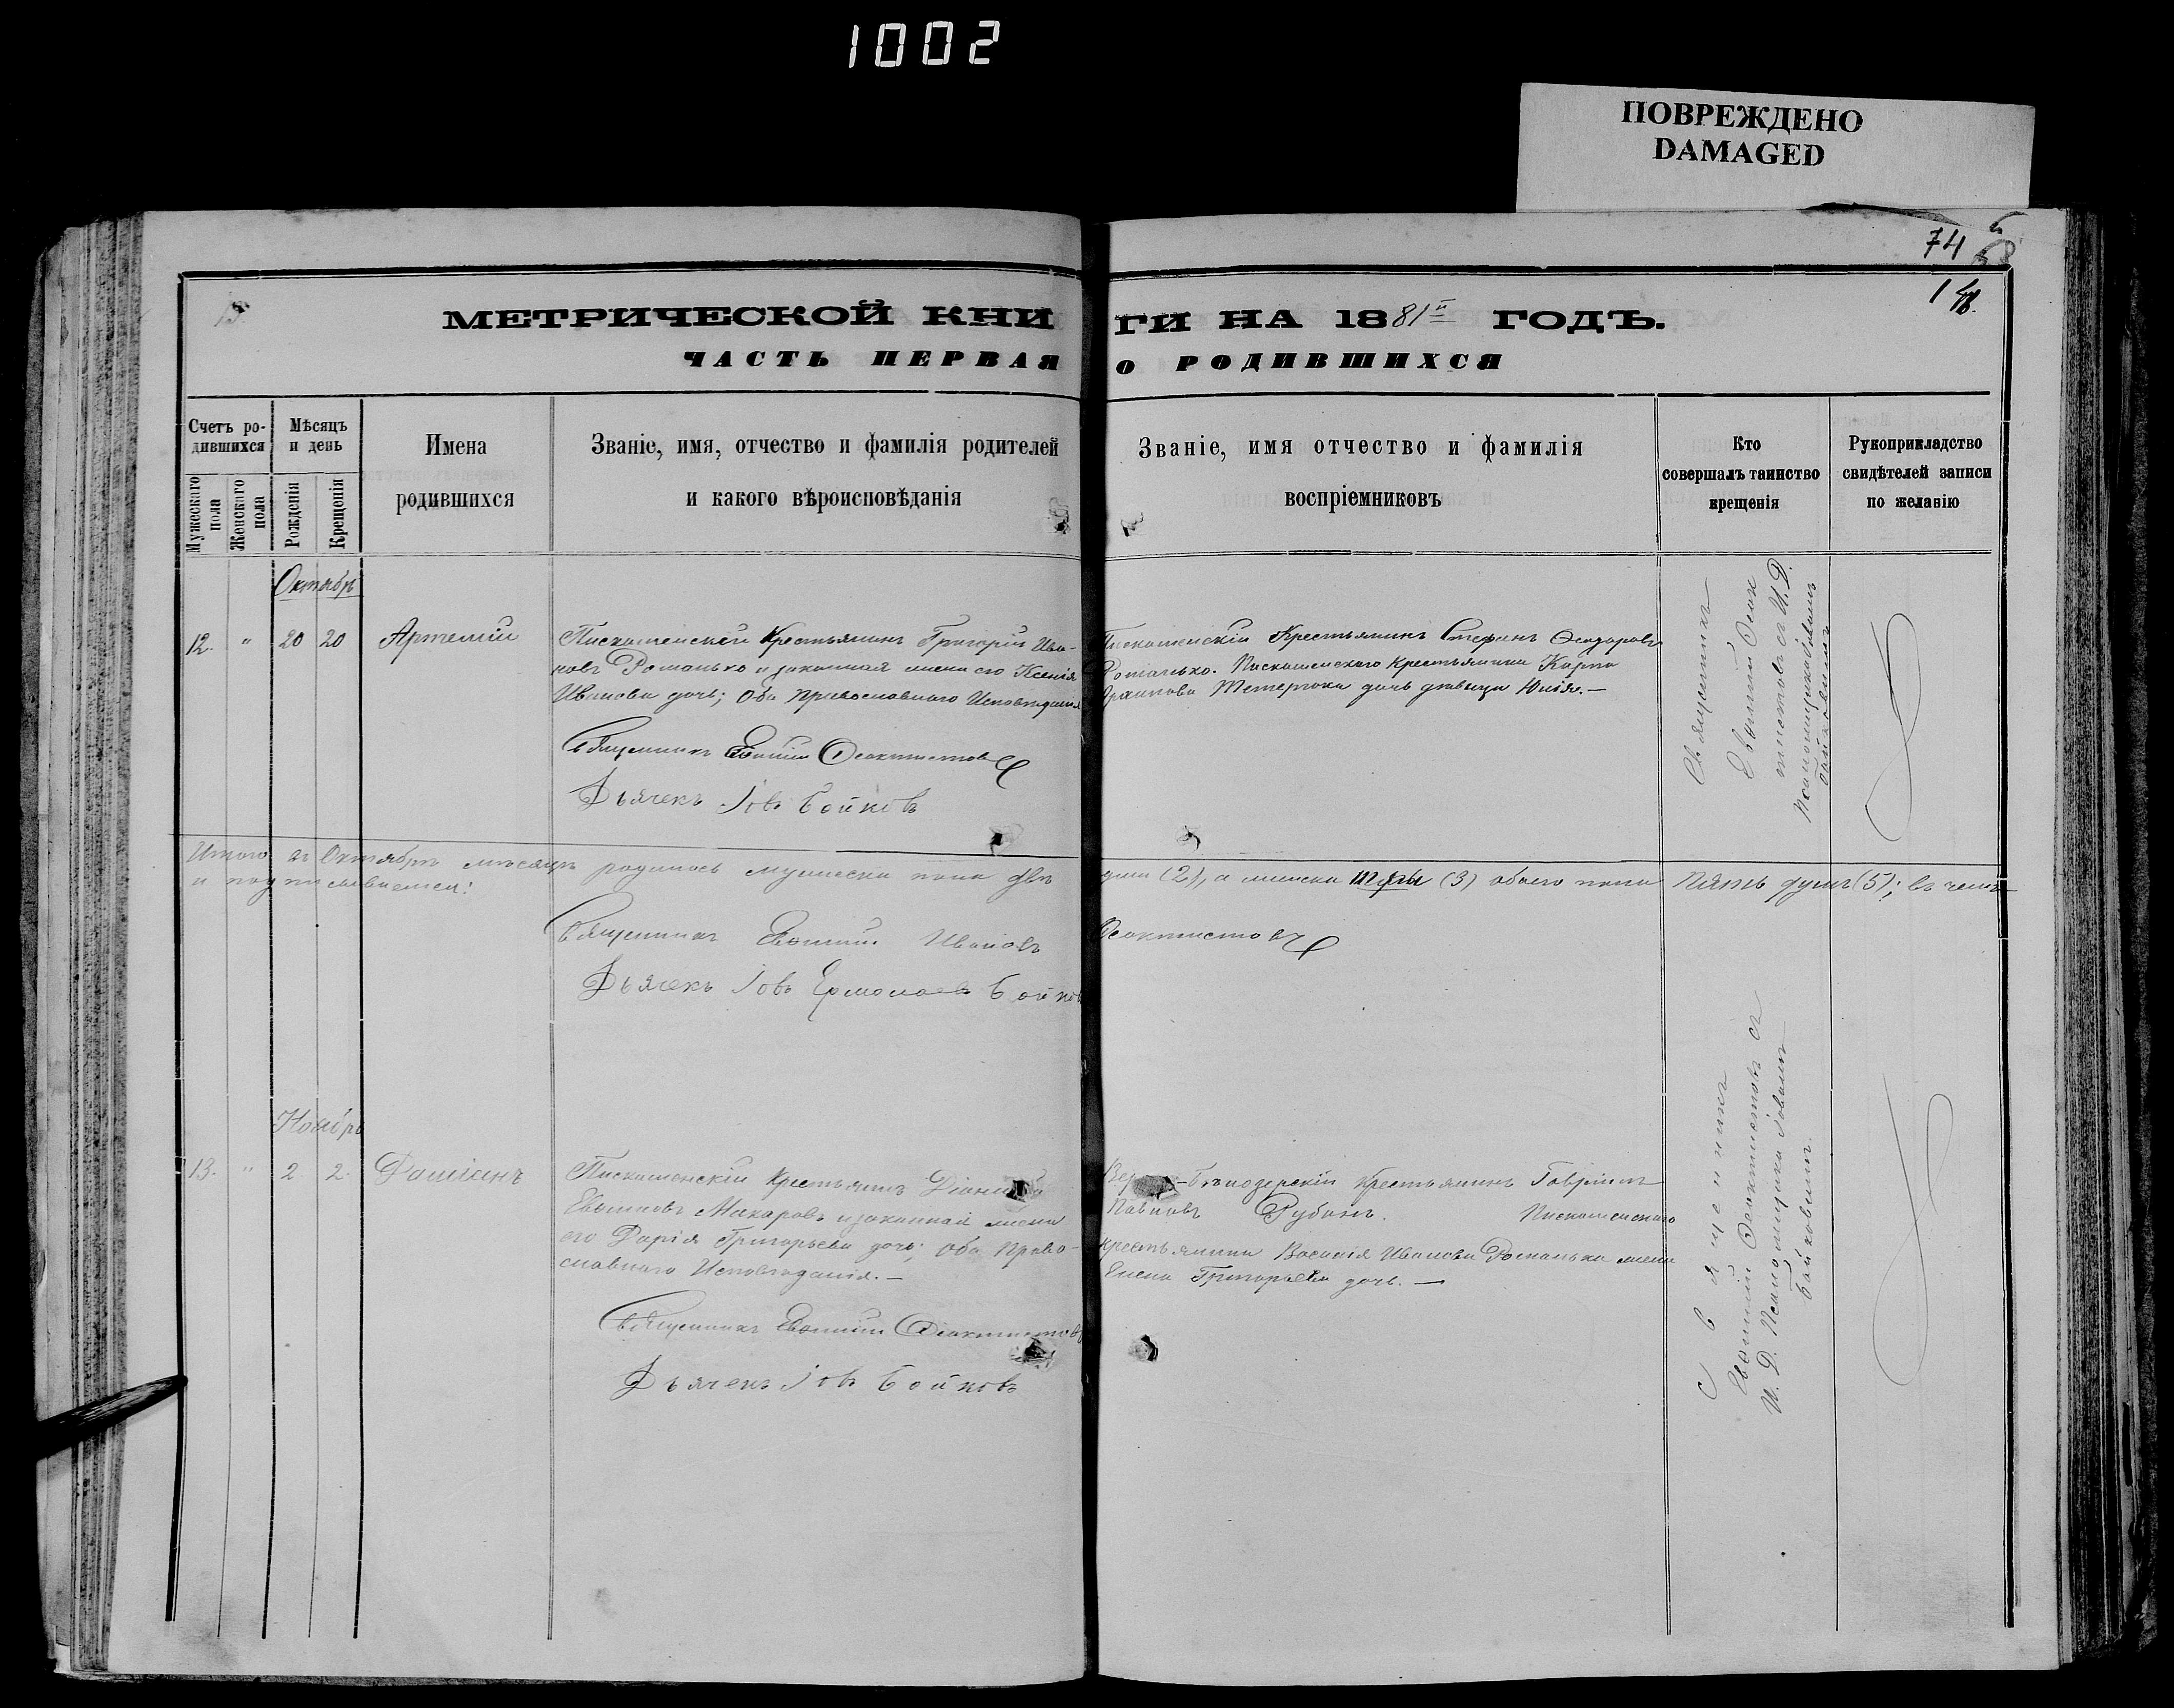 1002
ПОВРЕЖДЕНО
DAMAGED
74
МЕТРИЧЕСКОЙ КНИ ГИ НА 1881й ГОДЪ.
ЧАСТЬ ПЕРВАЯ О РОДИВШИХСЯ
Счетъ ро-
дившихся
Мужескаго
пола
Женскаго
пола
Мѣсяцъ
и день
Рожденія
Крещенія
Имена
родившихся
Званіе, имя, отчество и фамилія родителей
и какого вѣроисповѣданія
Званіе, имя отчество и фамилія
воспріемниковъ
Кто
совершалъ таинство
крещенія
Рукоприкладство
свидѣтелей записи
по желанію
Октябрь
12. " 20 20 Артемій
Крестьянинъ Григорій Ива-
новъ Романько и законная жена его Ксенія
Иванова дочь; Оба Православнаго Исповѣданія
Священникъ Евѳимій Ѳеоктистовъ
Дьячекъ Іовъ Бойковъ
Крестьянинъ Стефанъ Ѳеодоровъ
Романько. крестьянина Карпа
дочь дѣвица
Священникъ
Евѳимій Ѳеок
тистовъ съ И. Д.
Псаломщика Іовомъ
Бойковымъ
Итого въ Октябрѣ мѣсяцѣ родилось мужеска пола двѣ души (2), а женска три (3) обоего пола пять душъ (5); въ чемъ
и подписываемся:
Священникъ Евѳимій Ивановъ Ѳеоктистовъ
Дьячекъ Іовъ Ермолаевъ Бойковъ
Ноябрь
13. " 2 2. Даміанъ
Крестьянинъ
Евѳимовъ Макаровъ и законная жена
его Дарія Григорьева дочь; Оба Право-
славнаго Исповѣданія. —
Священникъ Евѳимій Ѳеоктистовъ
Дьячекъ Іовъ Бойковъ
крестьянинъ Гавріилъ
Павловъ Рубанъ.
крестьянина Василія Иванова Романька жена
Елена Григорьева дочь. —
Священникъ
Евѳимій Ѳеоктистовъ съ
И. Д. Псаломщика Іовомъ
Бойковымъ.